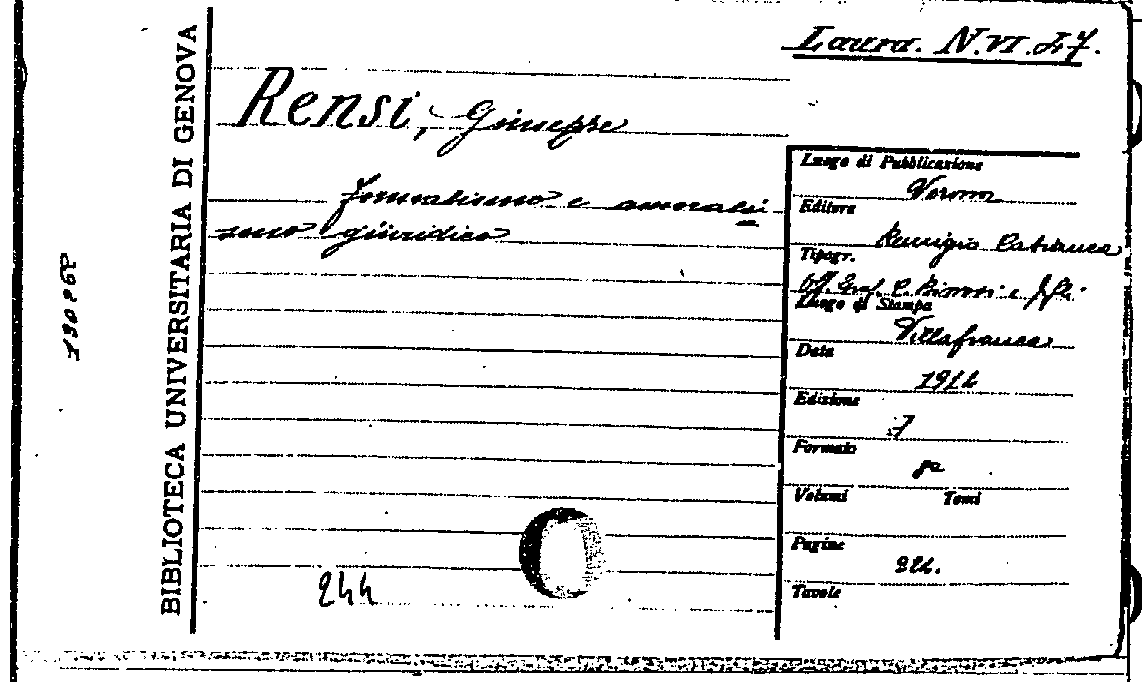 Laura. N.VI.47.
Rensi, Giuseppe
formalismo e amorali
smo giuridico
BIBLIOTECA UNIVERSITARIA DI GENOVA
Luogo di Pubblicazione
Verona
Editore
Remigio Cabianca
Tipogr.
Off. Graf. C. Biorosi e figli
Luogo di Stampa
Villafranca
Data
1914
Edizione
Formato
8a
Volumi Tomi
Pagine
244
Tavole